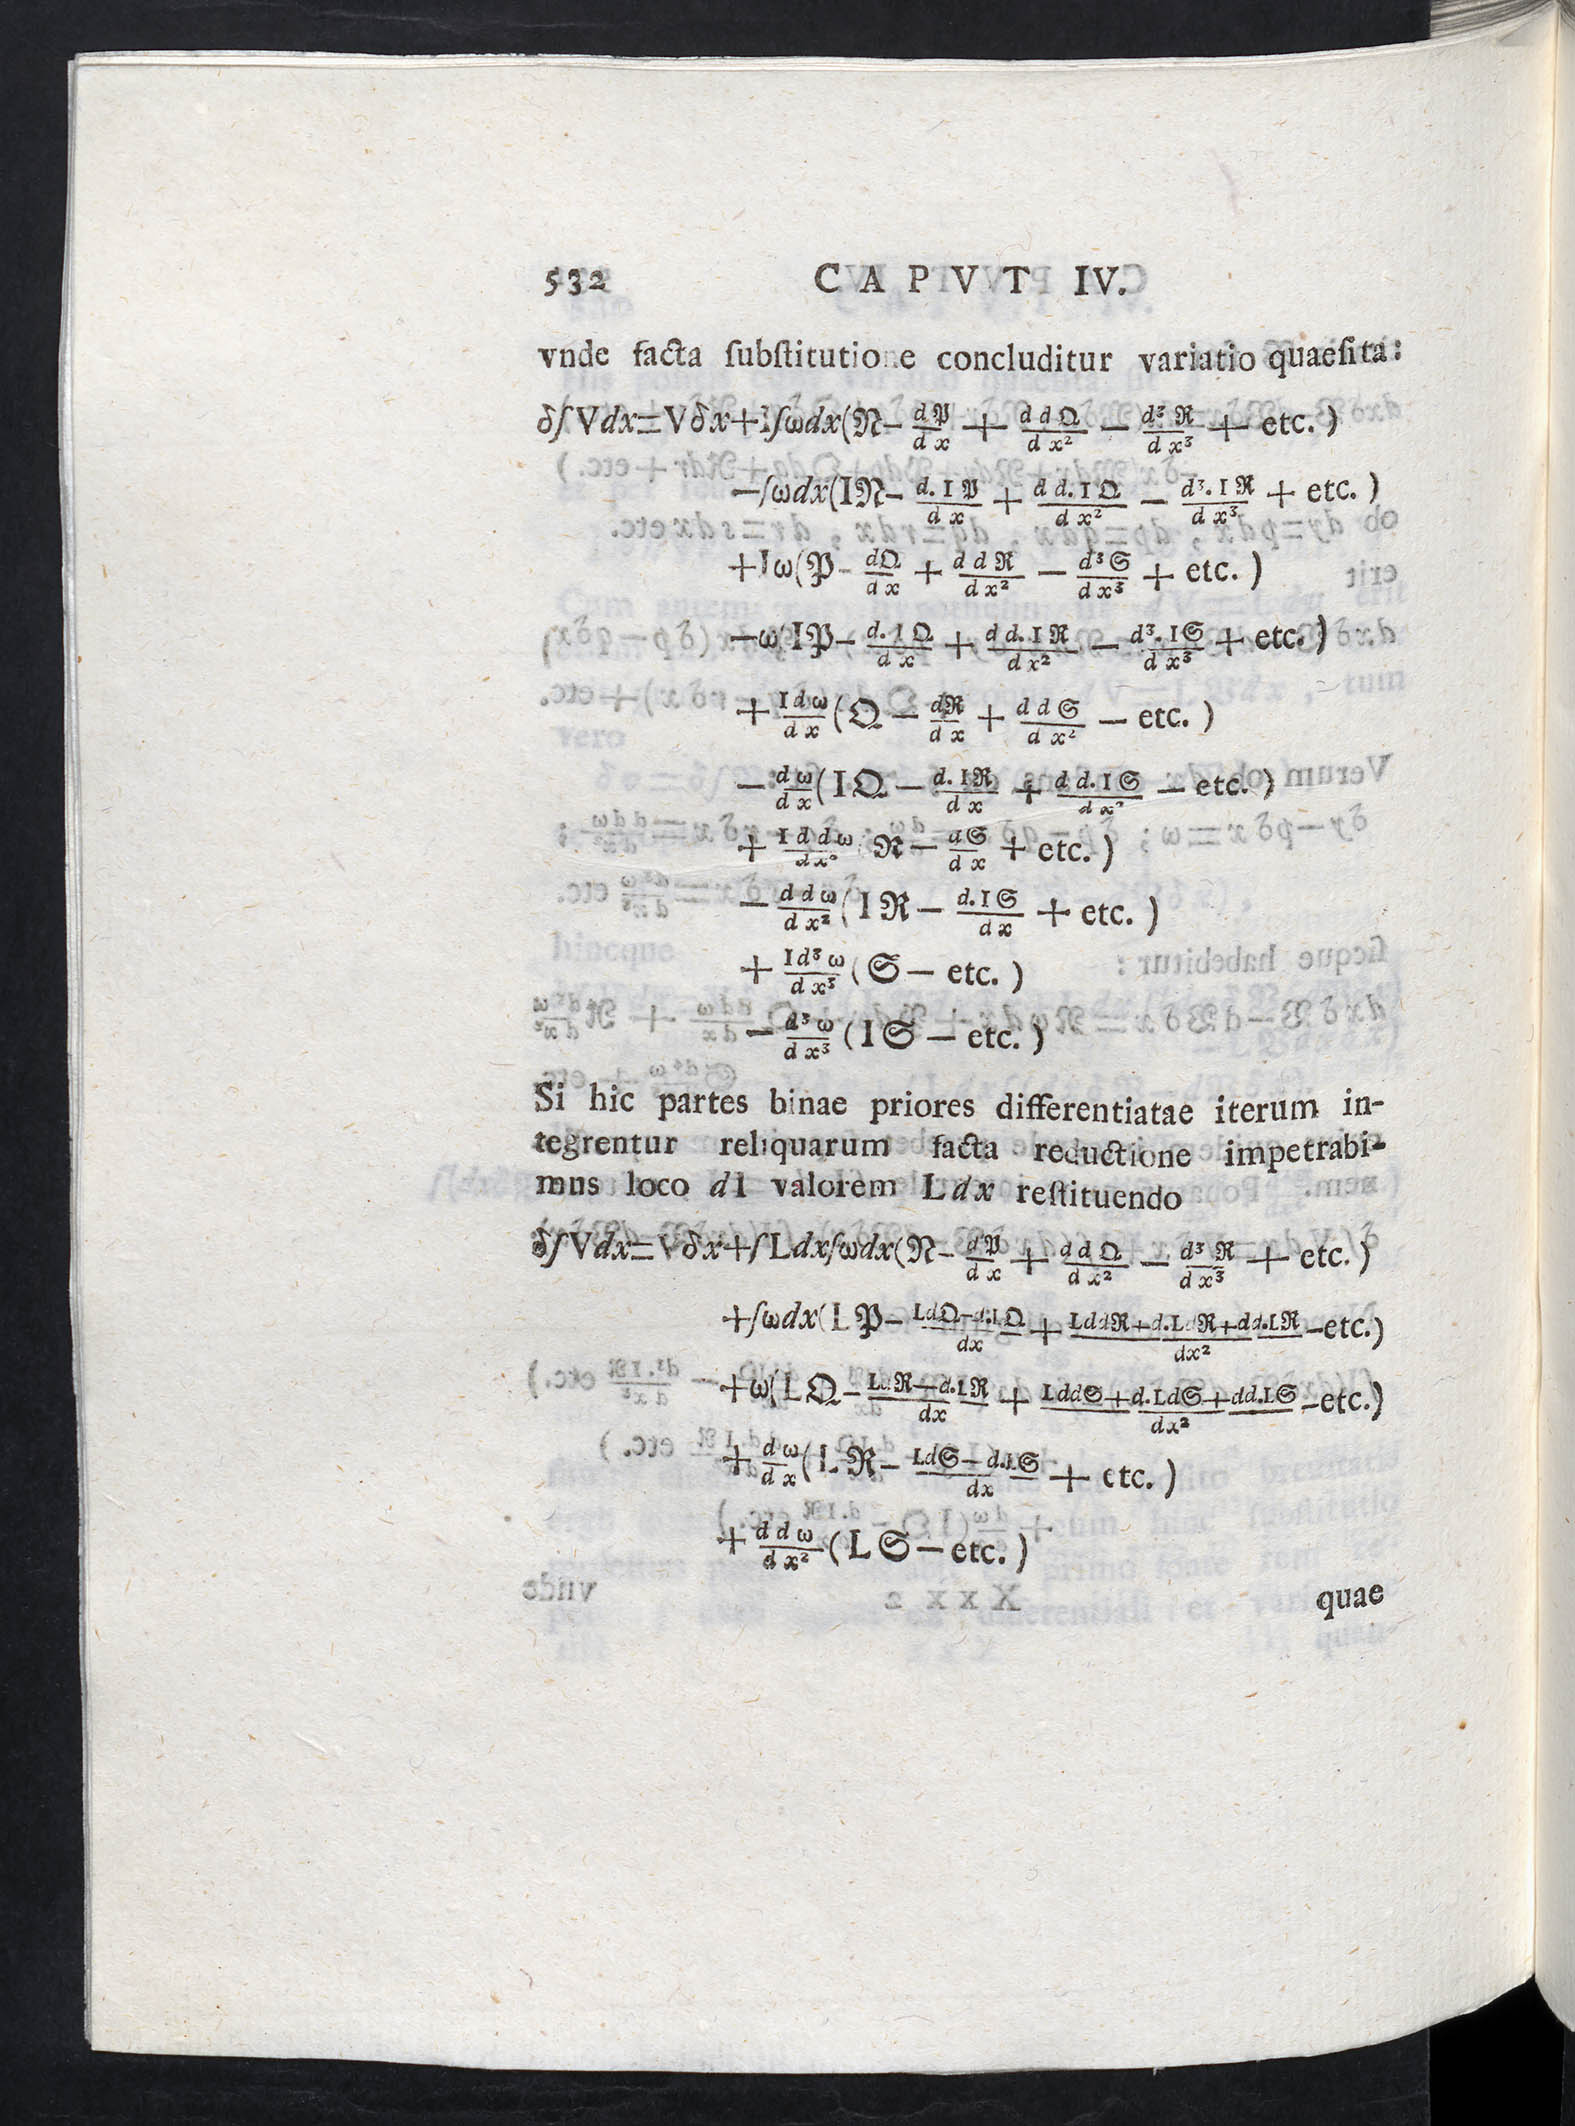 532 CAPVT IV.
vnde facta ſubſtitutione concluditur variatio quaeſita:
δ∫Vdx=Vδx+I∫ωdx(𝔑−d𝔓/dx+dd𝔔/dx²−d³ℜ/dx³+etc.)
−∫ωdx(I𝔑−d.I𝔓/dx+dd.I𝔔/dx²−d³.Iℜ/dx³+etc.)
+Iω(𝔓−d𝔔/dx+ddℜ/dx²−d³𝔖/dx³+etc.)
−ω(I𝔓−d.I𝔔/dx+dd.Iℜ/dx²−d³.I𝔖/dx³+etc.)
+Idω/dx(𝔔−dℜ/dx+dd𝔖/dx²−etc.)
−dω/dx(I𝔔−d.Iℜ/dx+dd.I𝔖/dx²−etc.)
+Iddω/dx²(ℜ−d𝔖/dx+etc.)
−ddω/dx²(Iℜ−d.I𝔖/dx+etc.)
+Id³ω/dx³(𝔖−etc.)
−d³ω/dx³(I𝔖−etc.)
Si hic partes binae priores differentiatae iterum in-
tegrentur reliquarum facta reductione impetrabi-
mus loco dI valorem Ldx reſtituendo
δ∫Vdx=Vδx+∫Ldx∫ωdx(𝔑−d𝔓/dx+dd𝔔/dx²−d³ℜ/dx³+etc.)
+∫ωdx(L𝔓−Ld𝔔−d.L𝔔/dx+Lddℜ+d.Ldℜ+dd.Lℜ/dx²−etc.)
+ω(L𝔔−Ldℜ−d.Lℜ/dx+Ldd𝔖+d.Ld𝔖+dd.L𝔖/dx²−etc.)
+dω/dx(Lℜ−Ld𝔖−d.L𝔖/dx+etc.)
+ddω/dx²(L𝔖−etc.)
quae